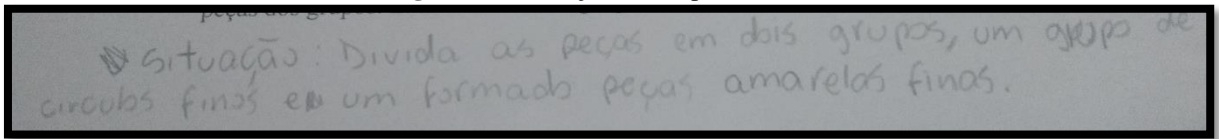 peças dos grupos
Situação: Divida as peças em dois grupos, um grupo de
circulos finos e um formado peças amarelas finas.